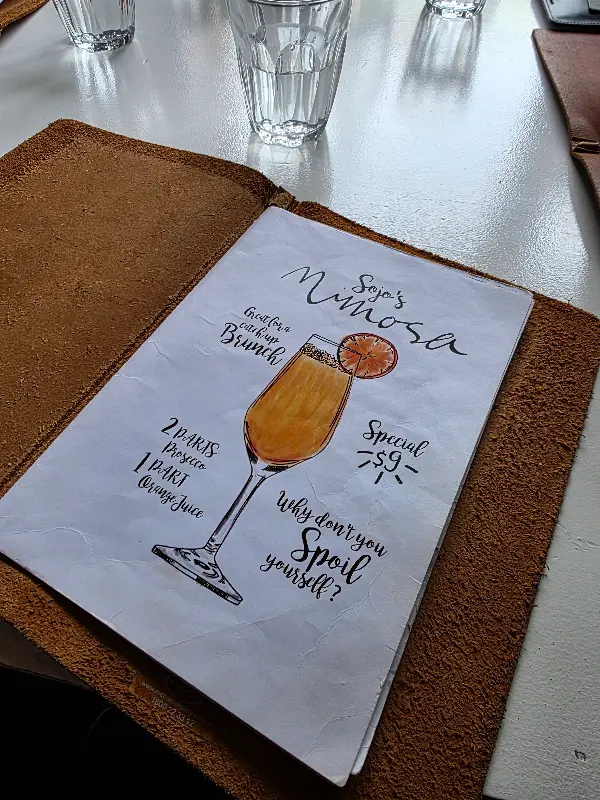 Sojo's
Mimosa
Great for a
catch up
Brunch
2 PARTS
Prosecco
1 PART
Orange Juice
Special
$9
Why don't you
Spoil
yourself?